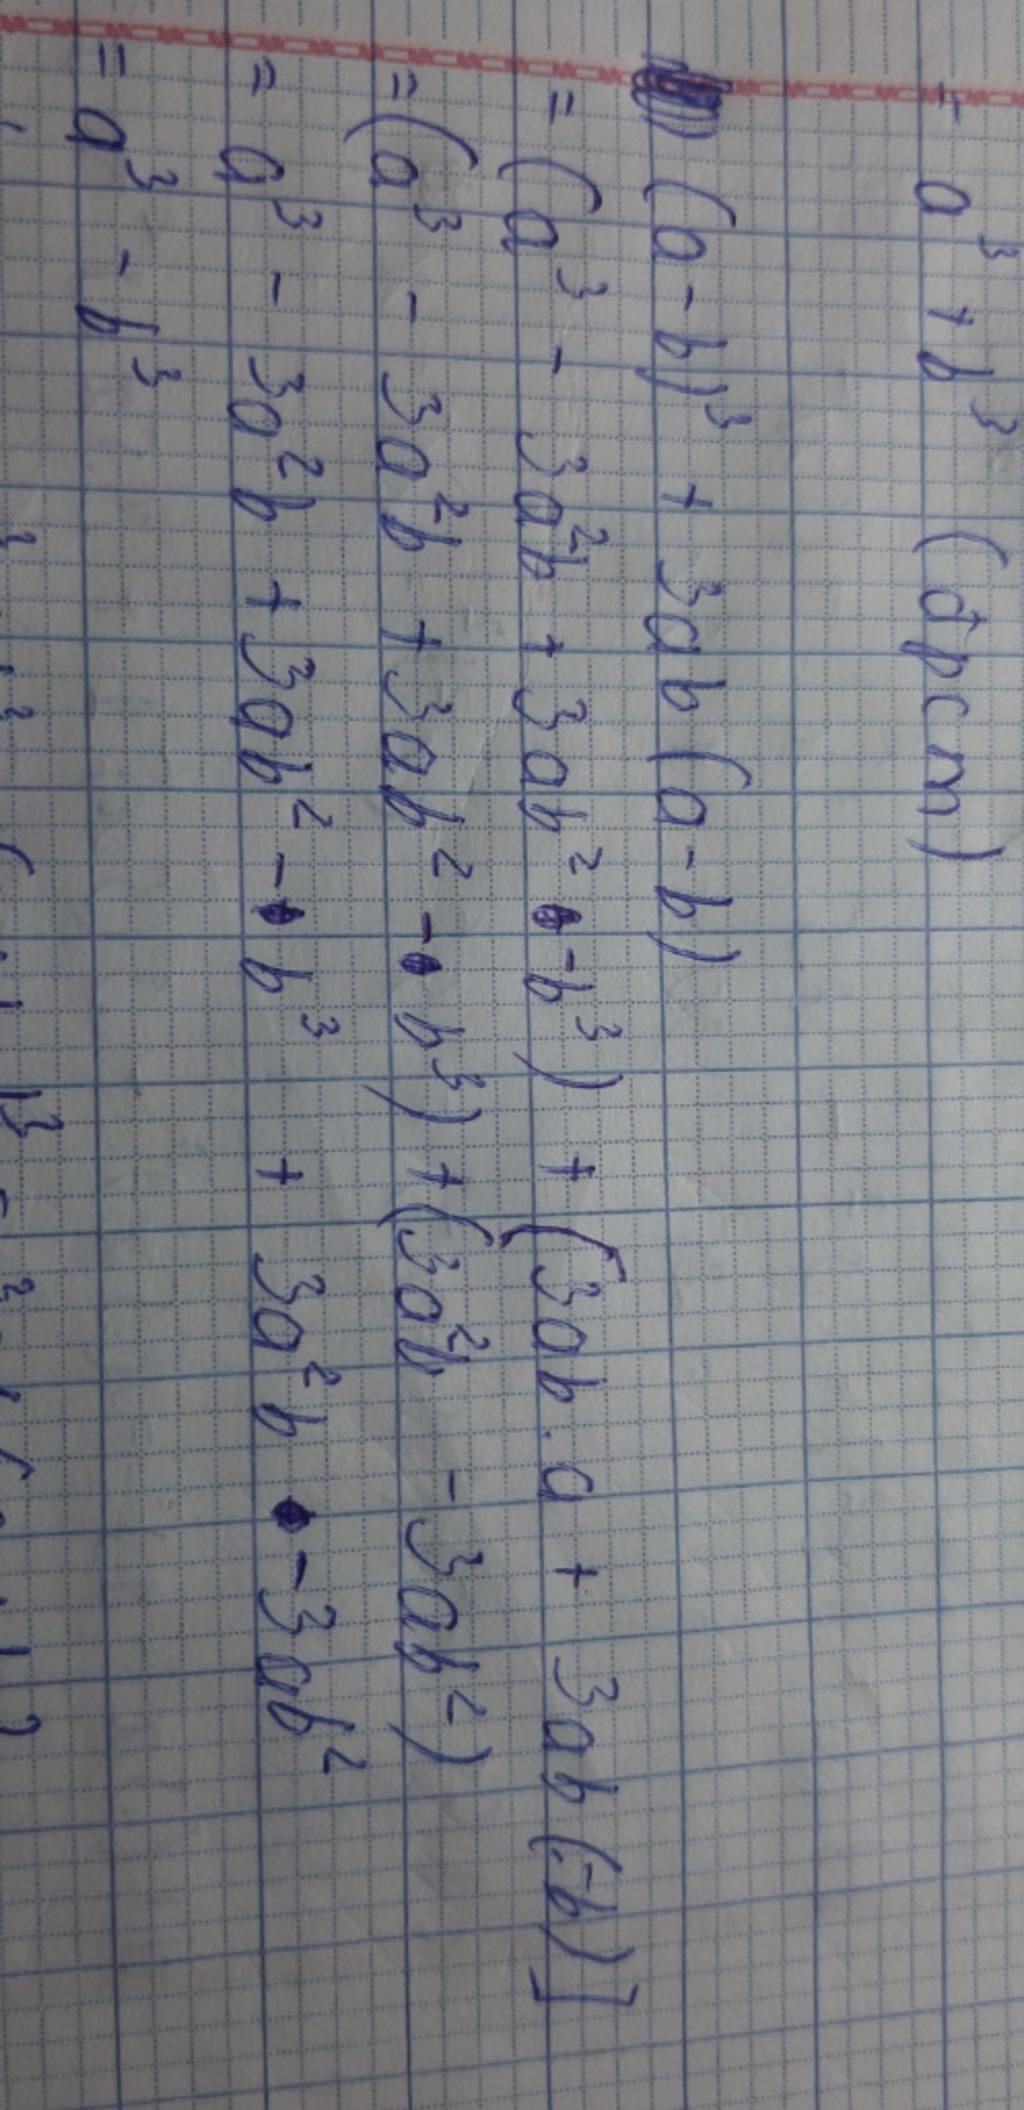 = a³ + b³ (đpcm)
(a - b)³ + 3ab(a - b)
= (a³ - 3a²b + 3ab² - b³) + [3ab . a + 3ab(-b)]
= (a³ - 3a²b + 3ab² - b³) + (3a²b - 3ab²)
= a³ - 3a²b + 3ab² - b³ + 3a²b - 3ab²
= a³ - b³